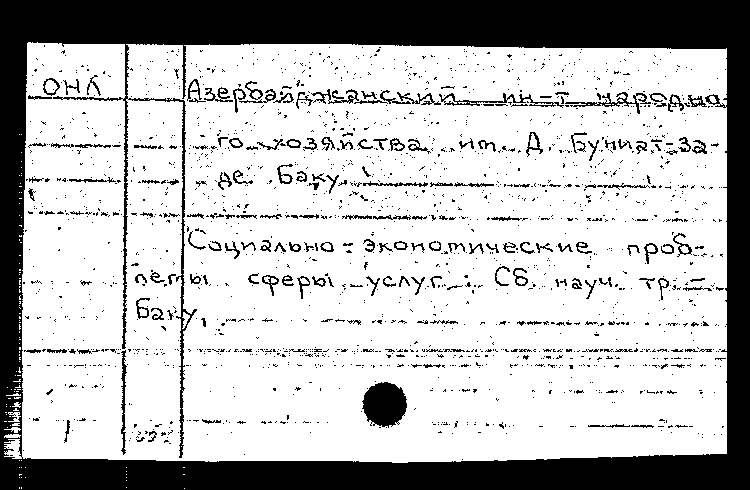 ОНЛ Азербайджанский ин-т народно-
го хозяйства им. Д. Буниат-за-
де. Баку
Социально-экономические проб-
лемы сферы услуг: Сб. науч. тр. -
Баку,